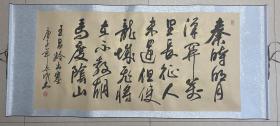 秦時明月
漢関萬
里長征人
未還但使
龍城飛將
在不教胡
馬度陰山
王昌齡出塞